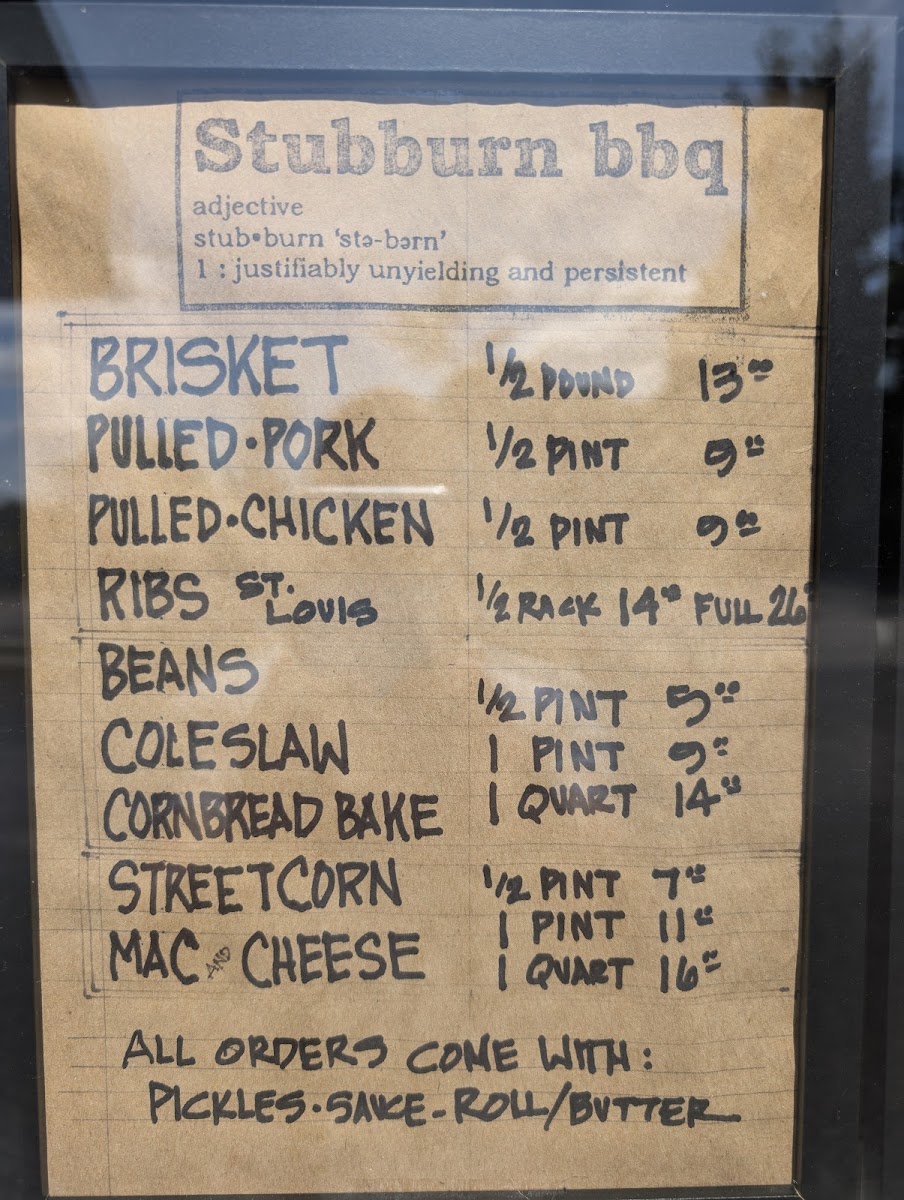 Stubburn bbq
adjective
stub•burn ‘stə-bərn’
1 : justifiably unyielding and persistent
BRISKET 1/2 POUND 13⁰⁰
PULLED·PORK 1/2 PINT 9⁰⁰
PULLED·CHICKEN 1/2 PINT 9⁰⁰
RIBS ST. LOUIS 1/2 RACK 14⁰⁰ FULL 26
BEANS
1/2 PINT 5⁰⁰
COLESLAW 1 PINT 9⁰⁰
CORNBREAD BAKE 1 QUART 14⁰⁰
STREETCORN 1/2 PINT 7⁰⁰
1 PINT 11⁰⁰
MAC AND CHEESE 1 QUART 16⁰⁰
ALL ORDERS COME WITH:
PICKLES·SAUCE-ROLL/BUTTER